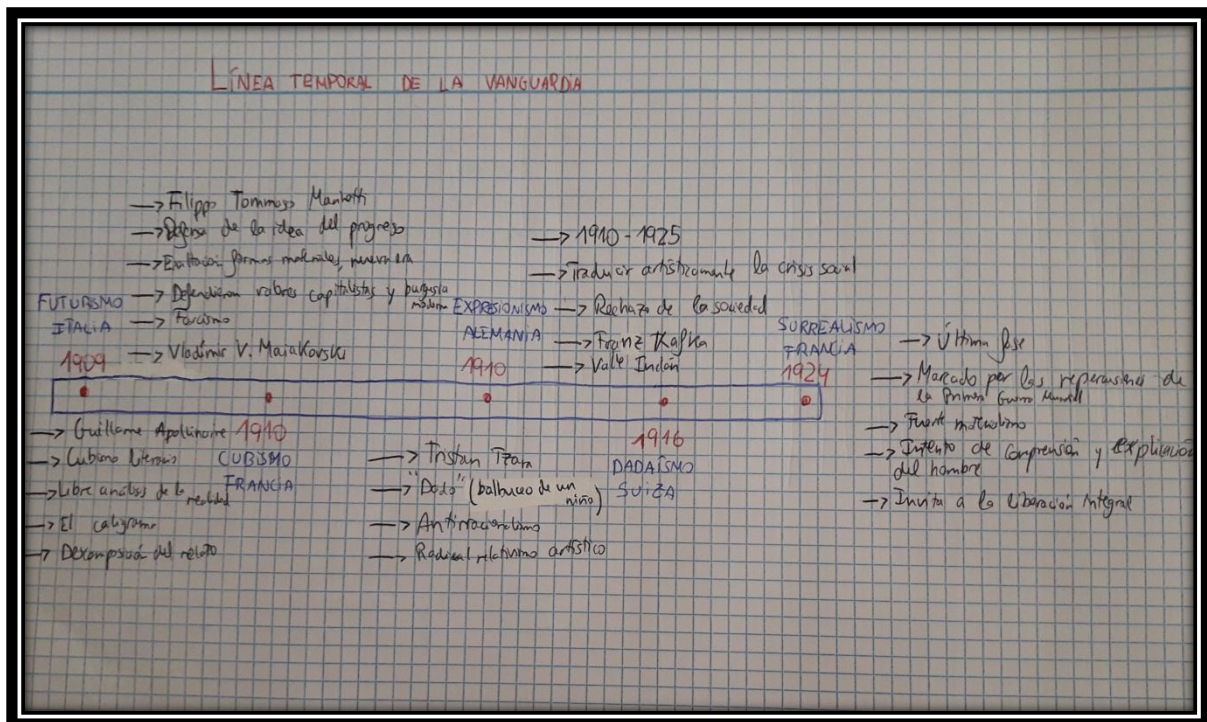 LÍNEA TEMPORAL DE LA VANGUARDIA
FUTURISMO
ITALIA
1909
→ Filippo Tommaso
→ Defensa de la idea del progreso
→ Exaltación formas materiales, nueva era
→ Defendieron valores capitalistas y burguesía
moderna
→ Fascismo
→ Vladimir V. Maiakovski
EXPRESIONISMO
ALEMANIA
1910
→ 1910 - 1925
→ Traducir artísticamente la crisis social
→ Rechazo de la sociedad
→ Franz Kafka
→ Valle Inclán
SURREALISMO
FRANCIA
1924
→ Última fase
→ Marcado por las repercusiones de
la Primera Guerra Mundial
→ Fuerte
→ Intento de comprensión y explicación
del hombre
→ Invita a la liberación integral
1910
CUBISMO
FRANCIA
→ Guillame Apollinaire
→ Cubismo literario
→ Libre análisis de la
realidad
→ El caligrama
→ Descomposición del relato
1916
DADAÍSMO
SUIZA
→ Tristan Tzara
→ "Dadá" (balbuceo de un
niño)
→ Antirracionalismo
→ Radical relativismo artístico